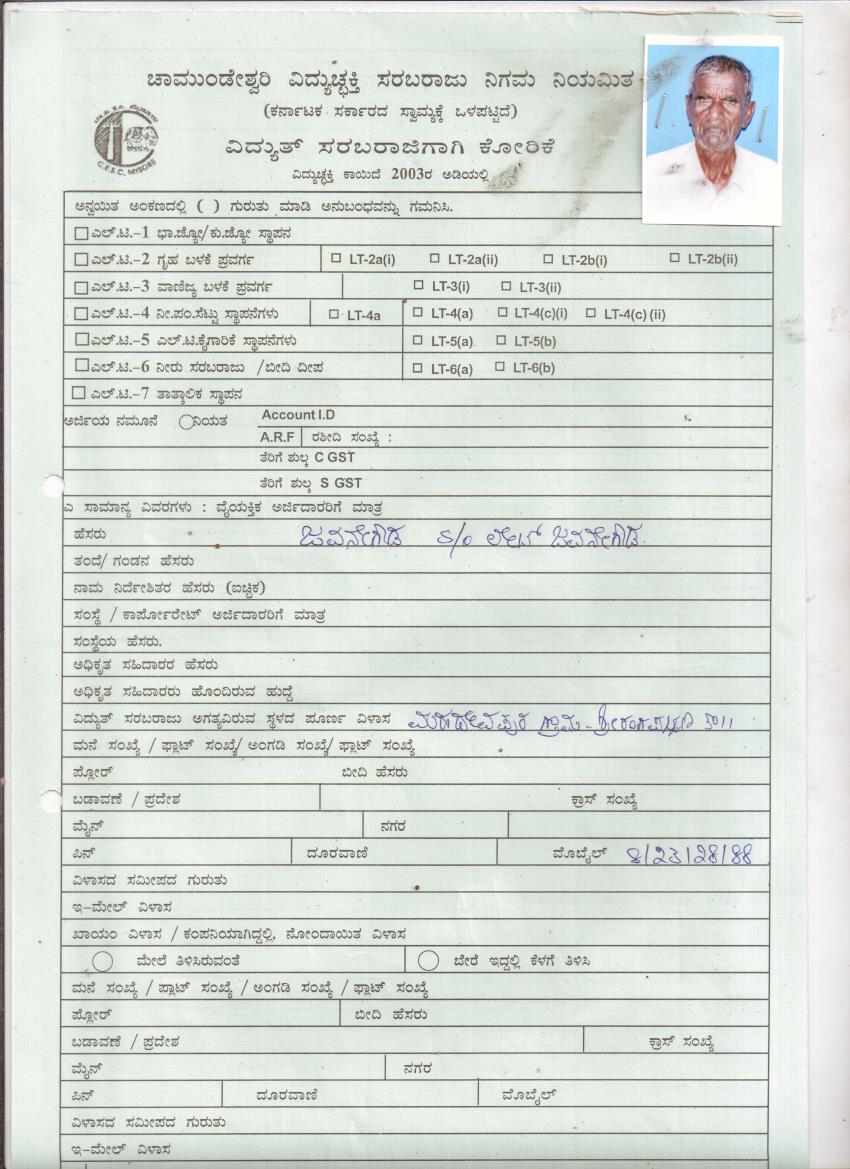 ಚಾಮುಂಡೇಶ್ವರಿ ವಿದ್ಯುಚ್ಛಕ್ತಿ ಸರಬರಾಜು ನಿಗಮ ನಿಯಮಿತ
(ಕರ್ನಾಟಕ ಸರ್ಕಾರದ ಸ್ವಾಮ್ಯಕ್ಕೆ ಒಳಪಟ್ಟಿದೆ)
C.E.S.C, MYSORE
ವಿದ್ಯುತ್ ಸರಬರಾಜಿಗಾಗಿ ಕೋರಿಕೆ
ವಿದ್ಯುಚ್ಛಕ್ತಿ ಕಾಯಿದೆ 2003ರ ಅಡಿಯಲ್ಲಿ
ಅನ್ವಯಿತ ಅಂಕಣದಲ್ಲಿ ( ) ಗುರುತು ಮಾಡಿ ಅನುಬಂಧವನ್ನು ಗಮನಿಸಿ.
ಎಲ್.ಟಿ.-1 ಭಾ.ಜ್ಯೋ/ಕು.ಜ್ಯೋ ಸ್ಥಾಪನ
ಎಲ್.ಟಿ.-2 ಗೃಹ ಬಳಕೆ ಪ್ರವರ್ಗ LT-2a(i) LT-2a(ii) LT-2b(i) LT-2b(ii)
ಎಲ್.ಟಿ.-3 ವಾಣಿಜ್ಯ ಬಳಕೆ ಪ್ರವರ್ಗ LT-3(i) LT-3(ii)
ಎಲ್.ಟಿ.-4 ನೀ.ಪಂ.ಸೆಟ್ಟು ಸ್ಥಾಪನೆಗಳು LT-4a LT-4(a) LT-4(c)(i) LT-4(c) (ii)
ಎಲ್.ಟಿ.-5 ಎಲ್.ಟಿ.ಕೈಗಾರಿಕೆ ಸ್ಥಾಪನೆಗಳು LT-5(a) LT-5(b)
ಎಲ್.ಟಿ.-6 ನೀರು ಸರಬರಾಜು /ಬೀದಿ ದೀಪ LT-6(a) LT-6(b)
ಎಲ್.ಟಿ.-7 ತಾತ್ಕಾಲಿಕ ಸ್ಥಾಪನ
ಅರ್ಜಿಯ ನಮೂನೆ ನಿಯತ Account I.D
A.R.F ರಶೀದಿ ಸಂಖ್ಯೆ :
ತೆರಿಗೆ ಶುಲ್ಕ C GST
ತೆರಿಗೆ ಶುಲ್ಕ S GST
ಎ ಸಾಮಾನ್ಯ ವಿವರಗಳು : ವೈಯಕ್ತಿಕ ಅರ್ಜಿದಾರರಿಗೆ ಮಾತ್ರ
ಹೆಸರು ಜವನೇಗೌಡ S/o ಲೇಟ್ ಜವನೇಗೌಡ.
ತಂದೆ/ಗಂಡನ ಹೆಸರು
ನಾಮ ನಿರ್ದೇಶಿತರ ಹೆಸರು (ಐಚ್ಛಿಕ)
ಸಂಸ್ಥೆ / ಕಾರ್ಪೋರೇಟ್ ಅರ್ಜಿದಾರರಿಗೆ ಮಾತ್ರ
ಸಂಸ್ಥೆಯ ಹೆಸರು.
ಅಧಿಕೃತ ಸಹಿದಾರರ ಹೆಸರು
ಅಧಿಕೃತ ಸಹಿದಾರರು ಹೊಂದಿರುವ ಹುದ್ದೆ
ವಿದ್ಯುತ್ ಸರಬರಾಜು ಅಗತ್ಯವಿರುವ ಸ್ಥಳದ ಪೂರ್ಣ ವಿಳಾಸ ಮಹದೇವಪುರ ಗ್ರಾಮ-
ಮನೆ ಸಂಖ್ಯೆ / ಫ್ಲಾಟ್ ಸಂಖ್ಯೆ/ ಅಂಗಡಿ ಸಂಖ್ಯೆ/ ಫ್ಲಾಟ್ ಸಂಖ್ಯೆ
ಪ್ಲೋರ್ ಬೀದಿ ಹೆಸರು
ಬಡಾವಣೆ / ಪ್ರದೇಶ ಕ್ರಾಸ್ ಸಂಖ್ಯೆ
ಮೈನ್ ನಗರ
ಪಿನ್ ದೂರವಾಣಿ ಮೊಬೈಲ್ 8/23/28/88
ವಿಳಾಸದ ಸಮೀಪದ ಗುರುತು
ಇ-ಮೇಲ್ ವಿಳಾಸ
ಖಾಯಂ ವಿಳಾಸ / ಕಂಪನಿಯಾಗಿದ್ದಲ್ಲಿ, ನೋಂದಾಯಿತ ವಿಳಾಸ
ಮೇಲೆ ತಿಳಿಸಿರುವಂತೆ ಬೇರೆ ಇದ್ದಲ್ಲಿ ಕೆಳಗೆ ತಿಳಿಸಿ
ಮನೆ ಸಂಖ್ಯೆ / ಪ್ಲಾಟ್ ಸಂಖ್ಯೆ / ಅಂಗಡಿ ಸಂಖ್ಯೆ / ಫ್ಲಾಟ್ ಸಂಖ್ಯೆ
ಪ್ಲೋರ್ ಬೀದಿ ಹೆಸರು
ಬಡಾವಣೆ / ಪ್ರದೇಶ ಕ್ರಾಸ್ ಸಂಖ್ಯೆ
ಮೈನ್ ನಗರ
ಪಿನ್ ದೂರವಾಣಿ ಮೊಬೈಲ್
ವಿಳಾಸದ ಸಮೀಪದ ಗುರುತು
ಇ-ಮೇಲ್ ವಿಳಾಸ